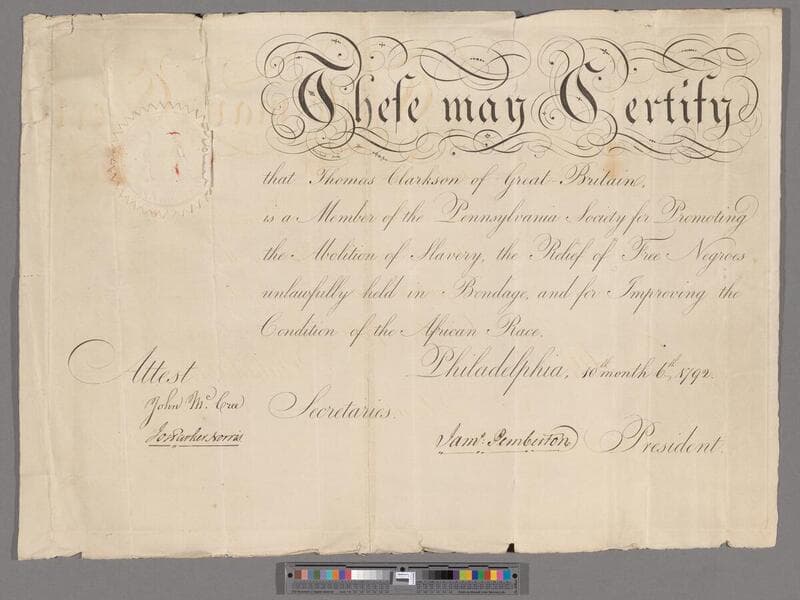 Theſe may Certify
that Thomas Clarkson of Great-Britain,
is a Member of the Pennsylvania Society for Promoting
the Abolition of Slavery, the Relief of Free Negroes
unlawfully held in Bondage, and for Improving the
Condition of the African Race.
Philadelphia, 10th month 6th 1792.
Attest
John Mc. Cree
Jos Parker Norris
Secretaries.
Jams. Pemberton President.